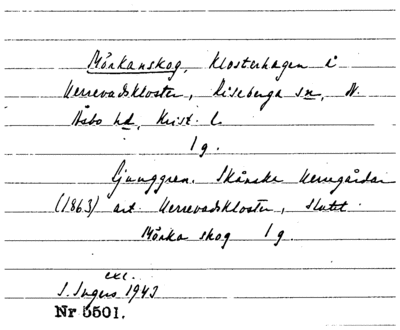 Mörkanskog, Klosterhagen i
Herrevadskloster, Riseberga sn, N.
Åsbo hd, Krist. l.
1 g.
Ljunggren. Skånska Herregårdar
(1863) art. Herrevadskloster, slutet
Mörka skog 1 g.
exc.
S. Ingers 1943
Nr 5501.